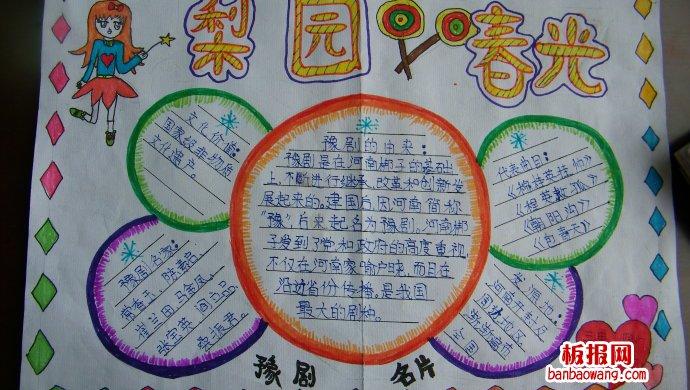 梨园春光
文化价值:
国家级非物质
文化遗产。
豫剧的由来:
豫剧是在河南梆子的基础
上,不断进行继承、改革和创新发
展起来的。建国后因河南简称
"豫"后来起名为豫剧。河南梆
子受到了党和政府的高度重视,
不仅在河南家喻户晓,而且在
沿边省份传播,是我国
最大的剧种。
代表曲目:
《穆桂英挂帅》
《朝阳沟》
《包青天》
豫剧名家:
常香玉、陈素真、
崔兰田、马金凤、
张宝英、阎立品、
桑振君。
发源地:
河南开封及
周边地区
全国
豫剧 名片
板报网
banbaowang.com